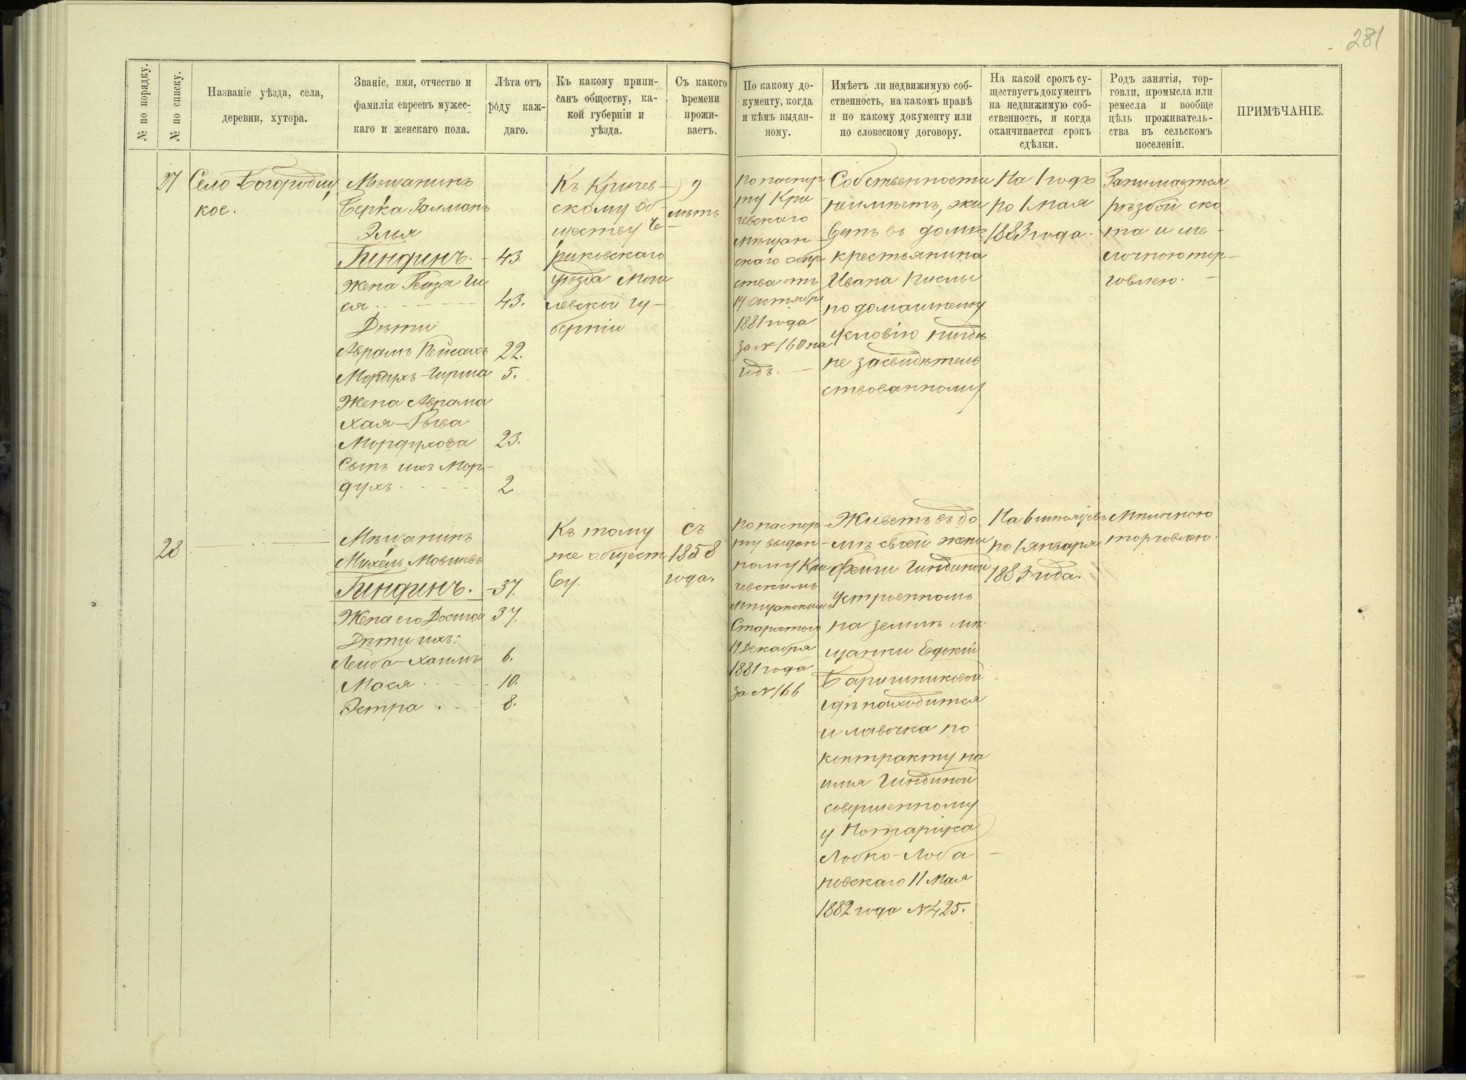 281
№ по порядку.
№ по списку.
Названіе уѣзда, села,
деревни, хутора.
Званіе, имя, отчество и
фамилія евреевъ мужес-
каго и женскаго пола.
Лѣта отъ
роду каж-
даго.
Къ какому припи-
санъ обществу, ка-
кой губерніи и
уѣзда.
Съ какого
времени
прожи-
ваетъ.
По какому до-
кументу, когда
и кѣмъ выдан-
ному.
Имѣетъ ли недвижимую соб-
ственность, на какомъ правѣ
и по какому документу или
по словесному договору.
На какой срокъ су-
ществуетъ документъ
на недвижимую соб-
ственность, и когда
оканчивается срокъ
сдѣлки.
Родъ занятія, тор-
говли, промысла или
ремесла и вообще
цѣль проживатель-
ства въ сельскомъ
поселеніи.
ПРИМѢЧАНІЕ.
27
Село Богородиц
кое.
Мѣщанинъ
Берка Залманъ
Элья
Гиндинъ. - 43
Жена
ся 43.
Дѣти
Аврамъ 22.
5.
Жена Аврама
Хая-Рыва
Мордухова 23.
Сынъ ихъ Мор-
духъ 2
Къ Кричев-
скому об-
ществу Че-
риковскаго
уѣзда Моги
левской гу-
берніи
9
лѣтъ
По паспор
ту Кри
чевскаго
мѣщан
скаго обще
ства отъ
19 октября
1881 года
за № 160 на
годъ.
Собственности
неимѣетъ, жи
ветъ въ домѣ
крестьянина
Ивана
по домашнему
условію нигдѣ
не засвидѣтель
ствованному
На 1 годъ
по 1 мая
1883 года.
Занимается
рѣзбой ско
та и ме-
лочною тор-
говлею.
28
Мѣщанинъ
Михель Мовшевъ
Гиндинъ. 37.
Жена его 37.
Дѣти ихъ:
Лейба-Хаимъ 6.
Мася 10.
Эстра 8.
Къ тому
же общест
ву.
Съ
1858
года.
По паспор
ту выдан-
ному Кри
чевскимъ
мѣщанскимъ
Старостою
19 декабря
1881 года
за № 166
Живетъ въ до
мѣ своей жены
Гиндиной
устроенномъ
на землѣ мѣ
щанки
Барышниковой
гдѣ находится
и лавочка по
контракту на
имя Гиндиной
совершенному
у Нотаріуса
Лобко-Лоба
новскаго 11 Мая
1882 года № 425.
На 6 мѣсяцевъ
по 1 января
1883 года.
Мѣлочною
торговлею.